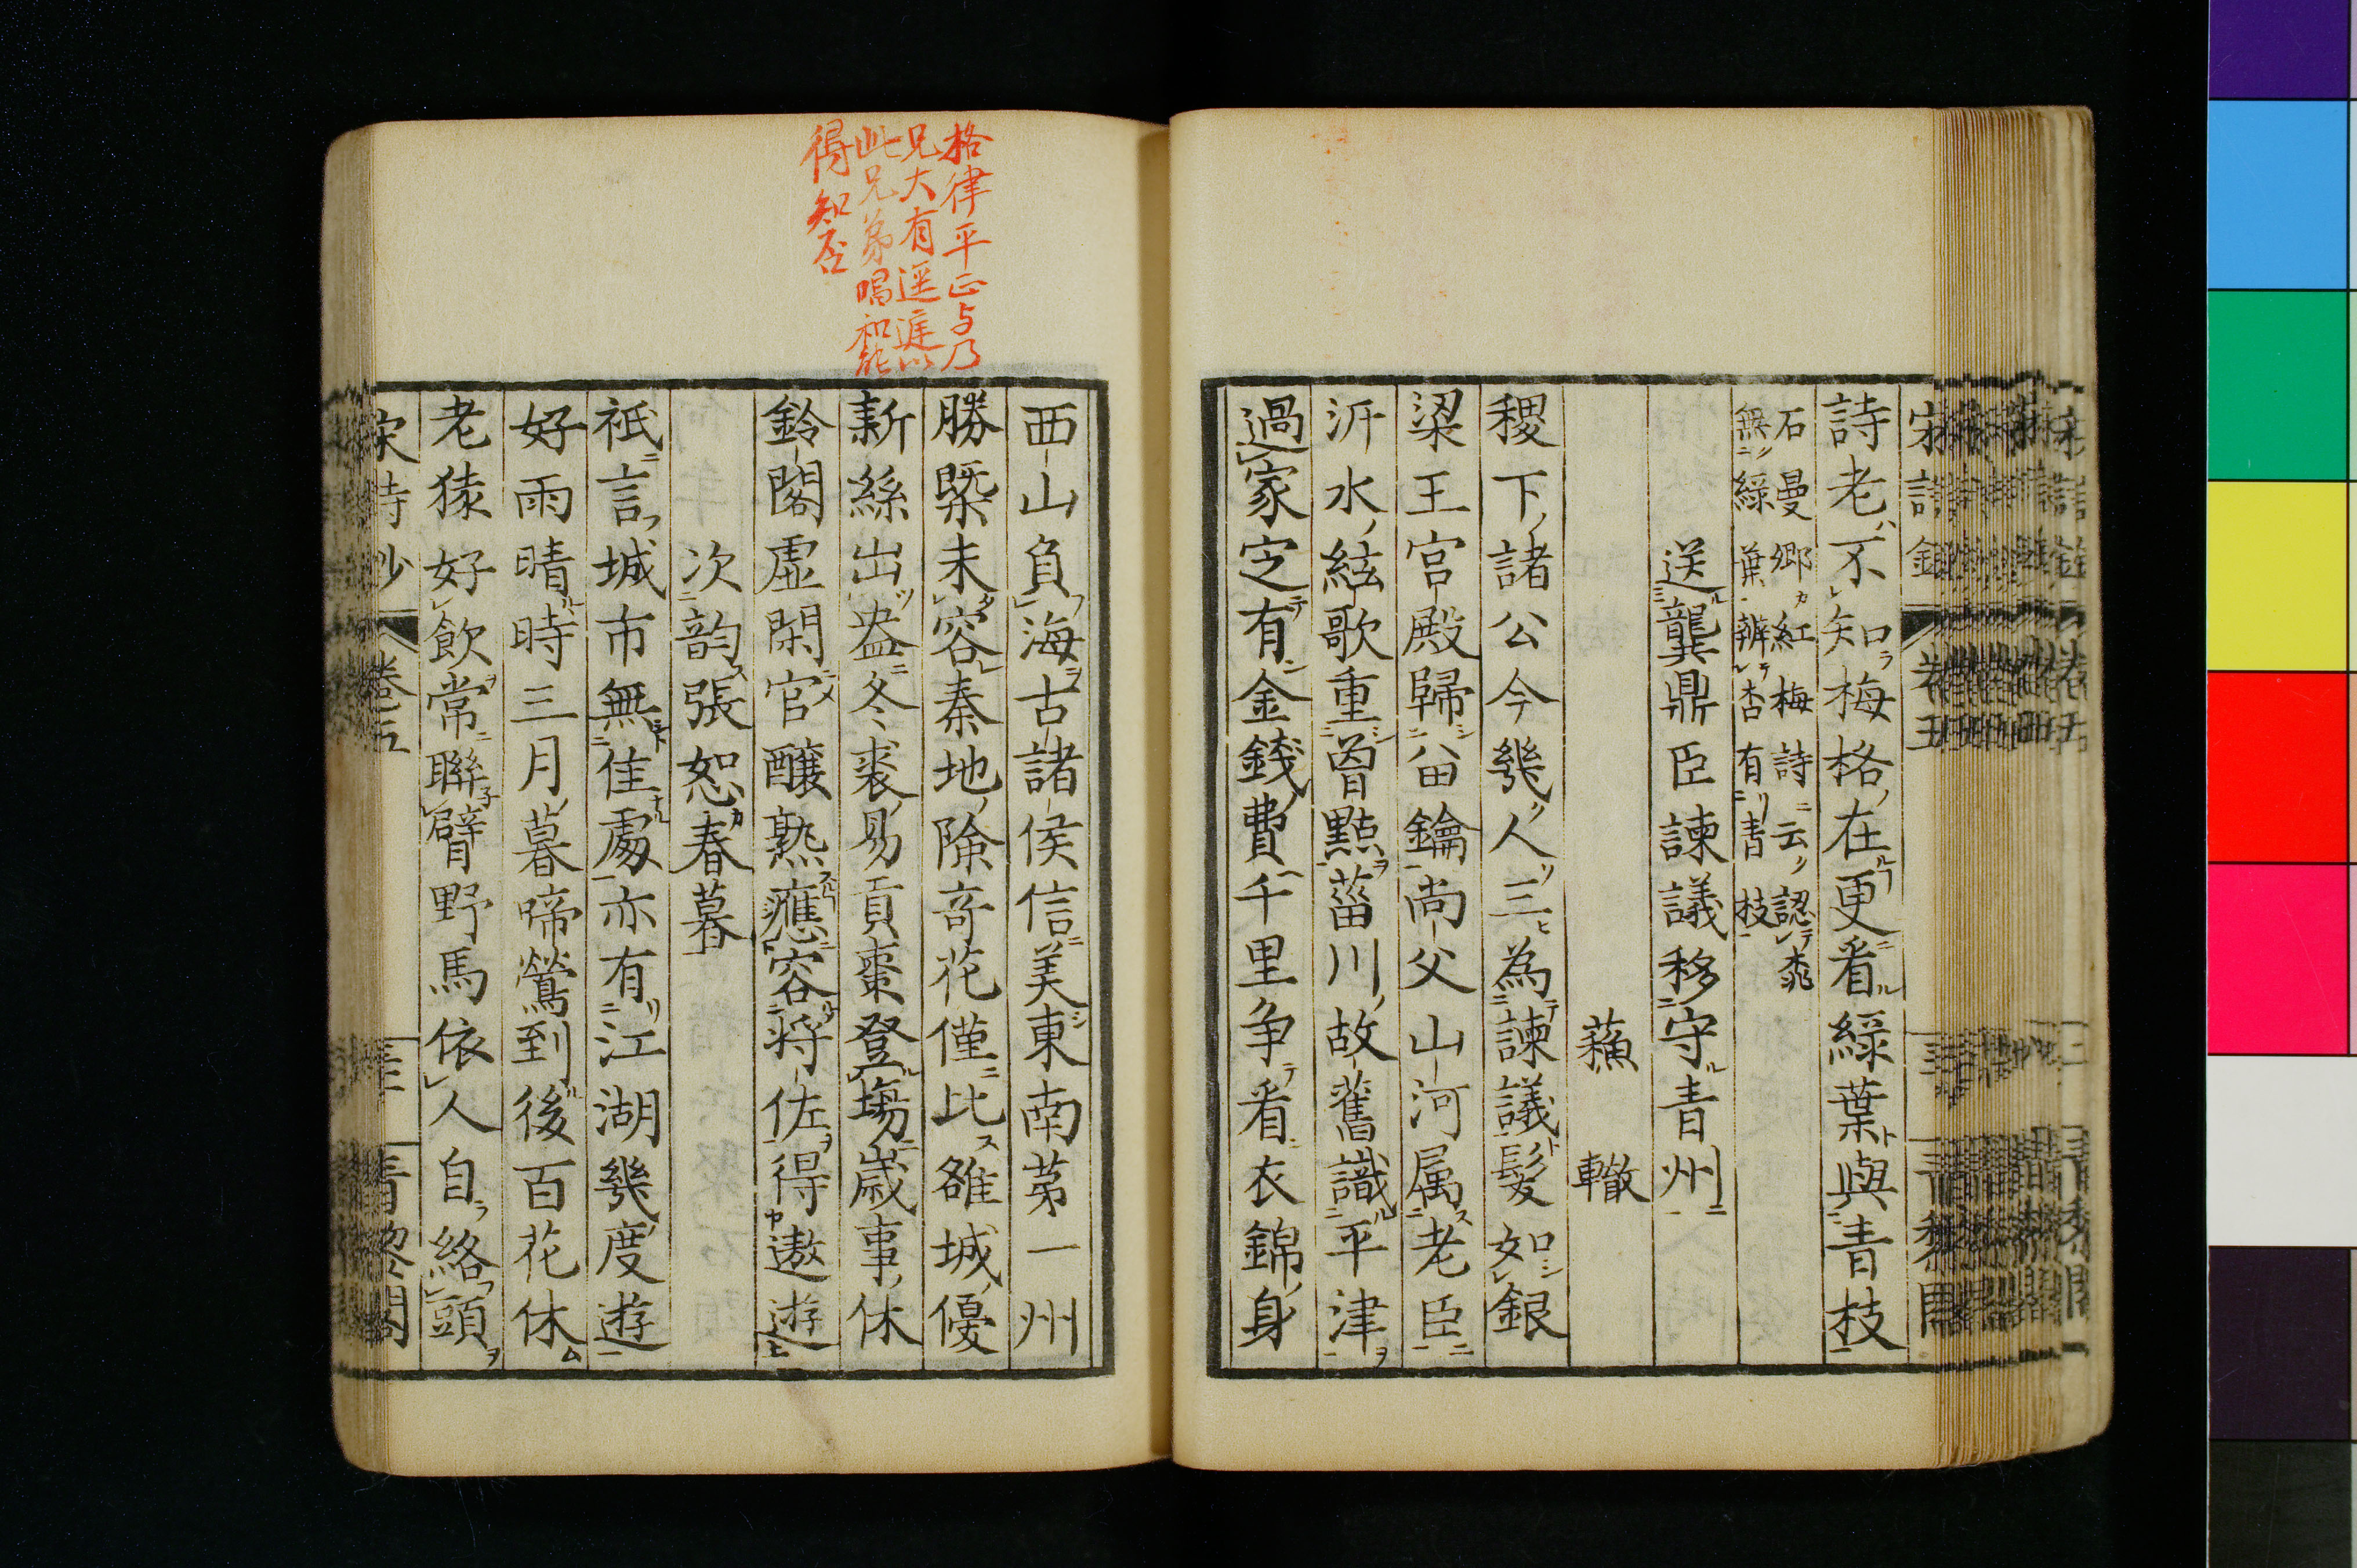 詩老不知梅格在更看綠葉與青枝
石曼卿紅梅詩云認桃
無綠葉辨杏有青枝
送龔鼎臣諫議移守青州
蘇轍
稷下諸公今幾人三為諫議髮如銀
梁王宮殿歸留鑰尚父山河属老臣
沂水絃歌重曾點菑川故舊識平津
過家定有金錢費千里争看衣錦身
格律平正与乃
兄大有逕遅以
此兄弟唱和能
得知否
西山負海古諸侯信美東南第一州
勝槩未容秦地險奇花僅比雒城優
新絲出盎冬裘易貢棗登塲歲事休
鈴閣虛閑官釀熟應容將佐得遨遊
次韵張恕春暮
祇言城市無佳處亦有江湖幾度遊
好雨晴時三月暮啼鶯到後百花休
老猿好飲常聯臂野馬依人自絡頭